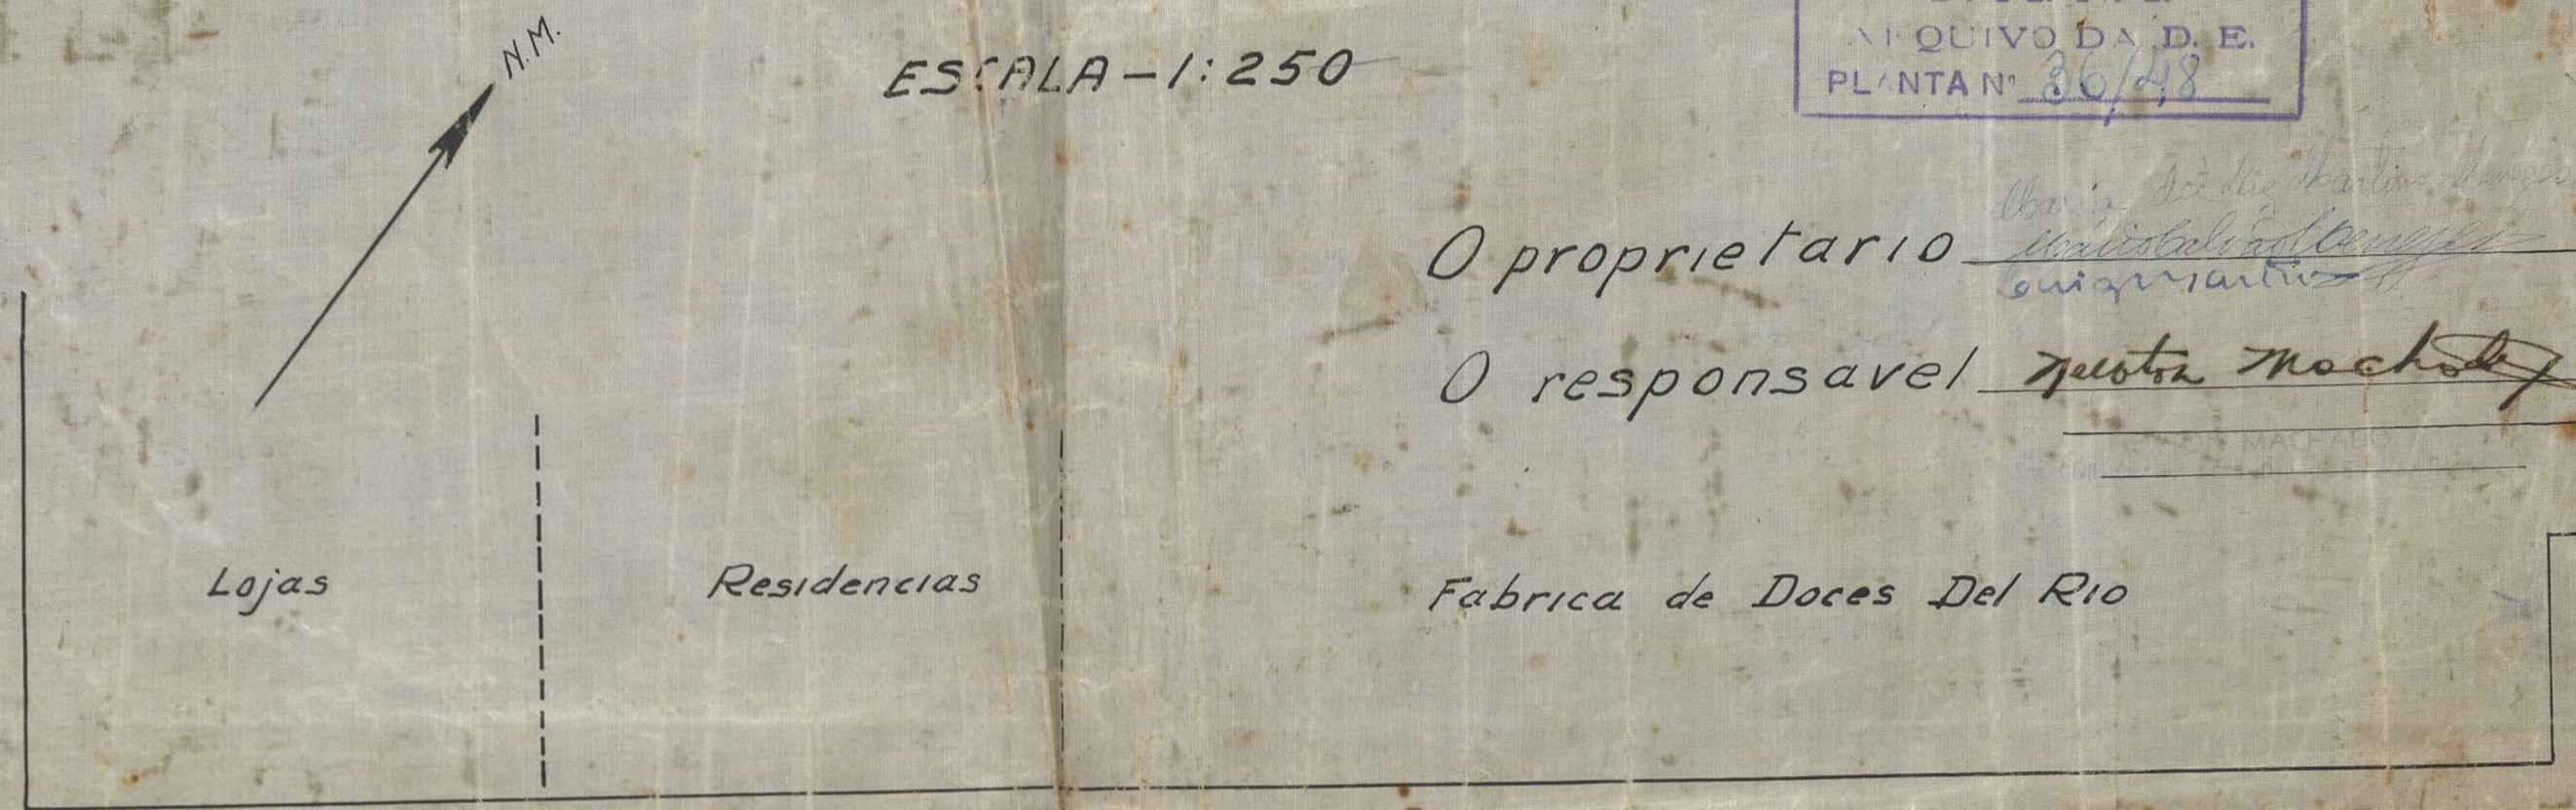 N.M.
ESCALA - 1:250
ARQUIVO DA D. E.
PLANTA Nº 36/48
O proprietario
O responsavel Newton Machado
MACHADO
Lojas
Residencias
Fabrica de Doces Del Rio